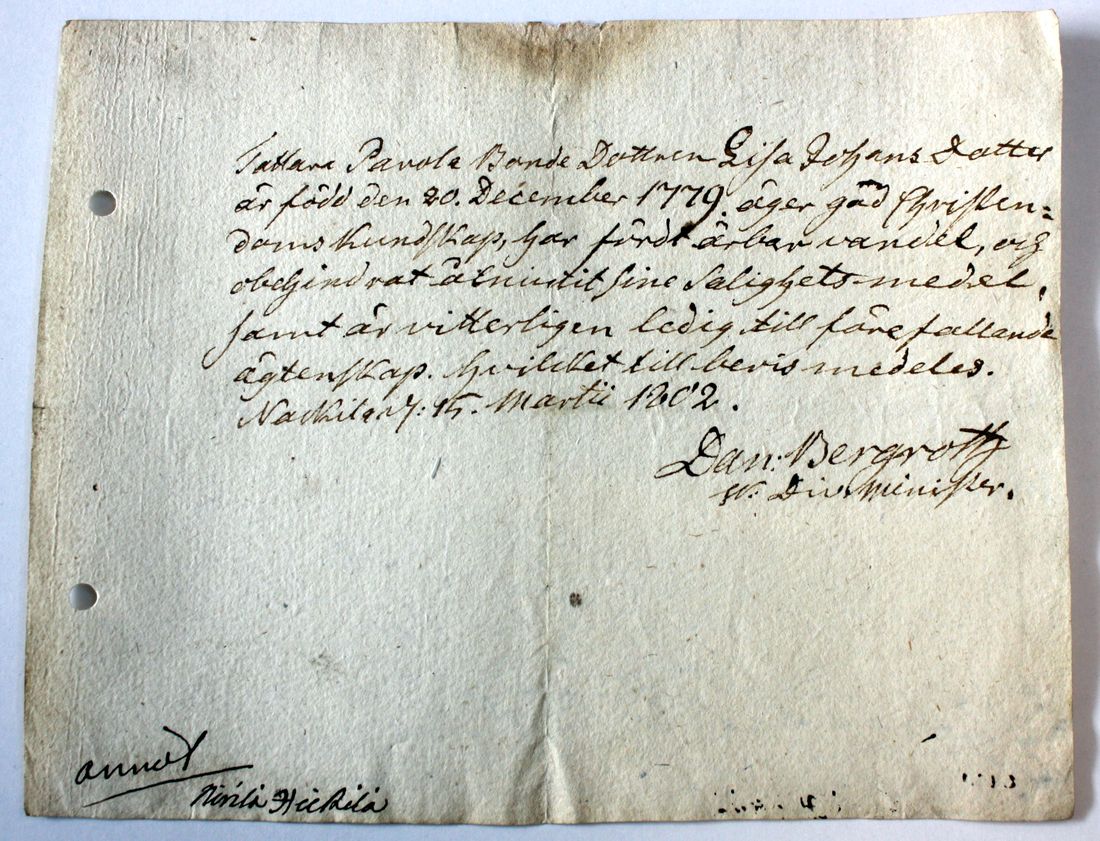 Tattara Pavola Bonde Dottren Lisa Johans Dotter
är född den 20. December 1779. äger god Christen=
doms kundskap, har fördt ärbar vandel, och
obehindrat åtniutit sine Salighets medel,
samt är vitterligen ledig till förefallande
ägtenskap. hvilcket till bevis medeles.
Nackila d: 15. Martii 1802.
Dan: Bergroth
V: Div: Minister.
annot
Kivilä Heickilä